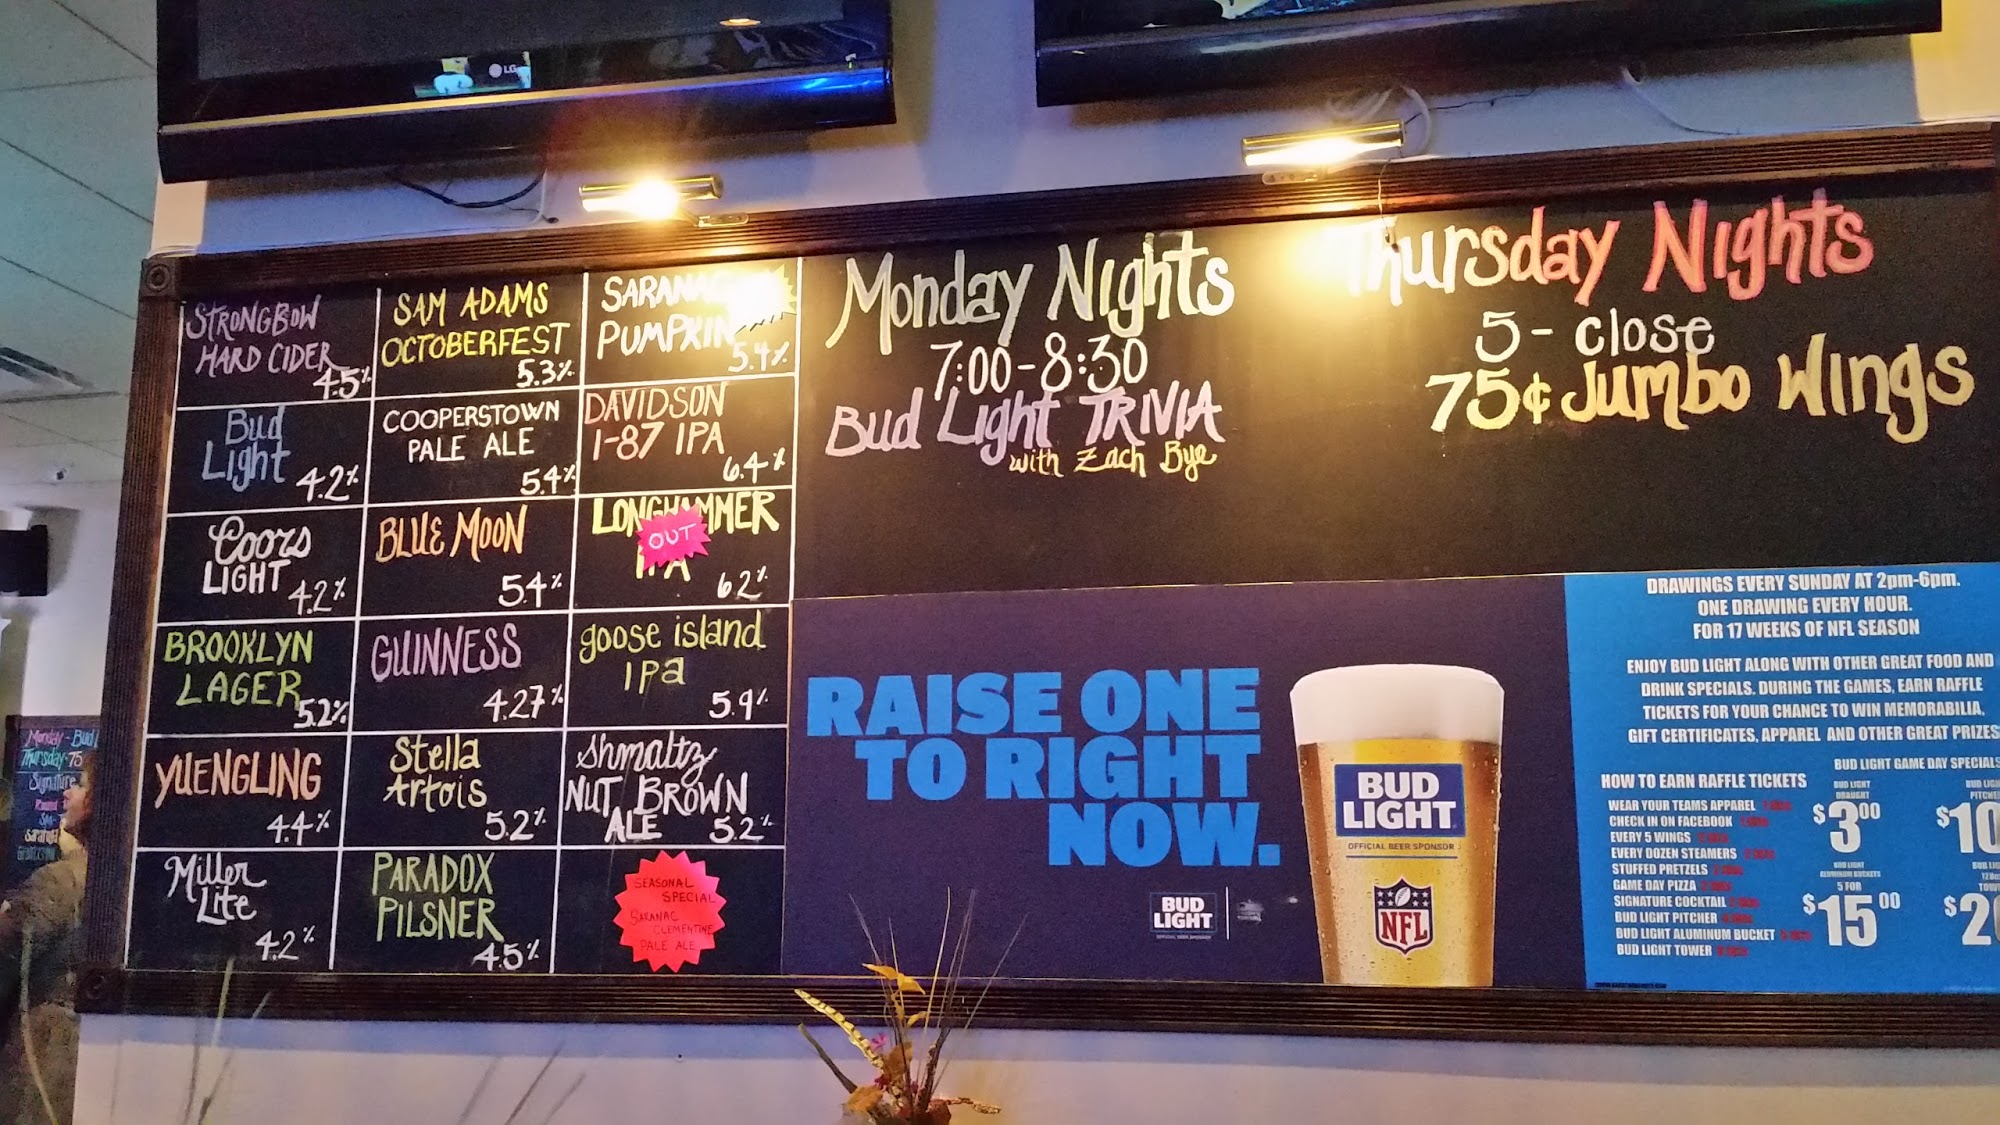 LG
STRONGBOW
HARD CIDER
4.5%
SAM ADAMS
OCTOBERFEST
5.3%
SARANAC
PUMPKIN
5.4%
Bud
Light
4.2%
COOPERSTOWN
PALE ALE
5.4%
DAVIDSON
1-87 IPA
6.4%
Coors
LIGHT
4.2%
BLUE MOON
5.4%
LONGHAMMER
OUT
IPA
6.2%
BROOKLYN
LAGER
5.2%
GUINNESS
4.27%
goose island
IPa
5.9%
YUENGLING
4.4%
Stella
Artois
5.2%
Shmaltz
NUT BROWN
ALE 5.2%
Miller
Lite
4.2%
PARADOX
PILSNER
4.5%
SEASONAL
SPECIAL
SARANAC
CLEMENTINE
PALE ALE
Monday Nights
7:00-8:30
Bud Light TRIVIA
with Zach Bye
Thursday Nights
5 - close
75¢ Jumbo Wings
RAISE ONE
TO RIGHT
NOW.
BUD
LIGHT
BUD
LIGHT
OFFICIAL BEER SPONSOR
NFL
DRAWINGS EVERY SUNDAY AT 2pm-6pm.
ONE DRAWING EVERY HOUR.
FOR 17 WEEKS OF NFL SEASON
ENJOY BUD LIGHT ALONG WITH OTHER GREAT FOOD AND
DRINK SPECIALS. DURING THE GAMES, EARN RAFFLE
TICKETS FOR YOUR CHANCE TO WIN MEMORABILIA,
GIFT CERTIFICATES, APPAREL AND OTHER GREAT PRIZES
HOW TO EARN RAFFLE TICKETS
WEAR YOUR TEAMS APPAREL
CHECK IN ON FACEBOOK
EVERY 5 WINGS
EVERY DOZEN STEAMERS
STUFFED PRETZELS
GAME DAY PIZZA
SIGNATURE COCKTAIL
BUD LIGHT PITCHER
BUD LIGHT ALUMINUM BUCKET
BUD LIGHT TOWER
BUD LIGHT GAME DAY SPECIALS
BUD LIGHT
DRAUGHT
$3.00
BUD LIGHT
ALUMINUM BUCKETS
5 FOR
$15.00
$10
$2
Monday - Bud
Thursday - 75
Signature